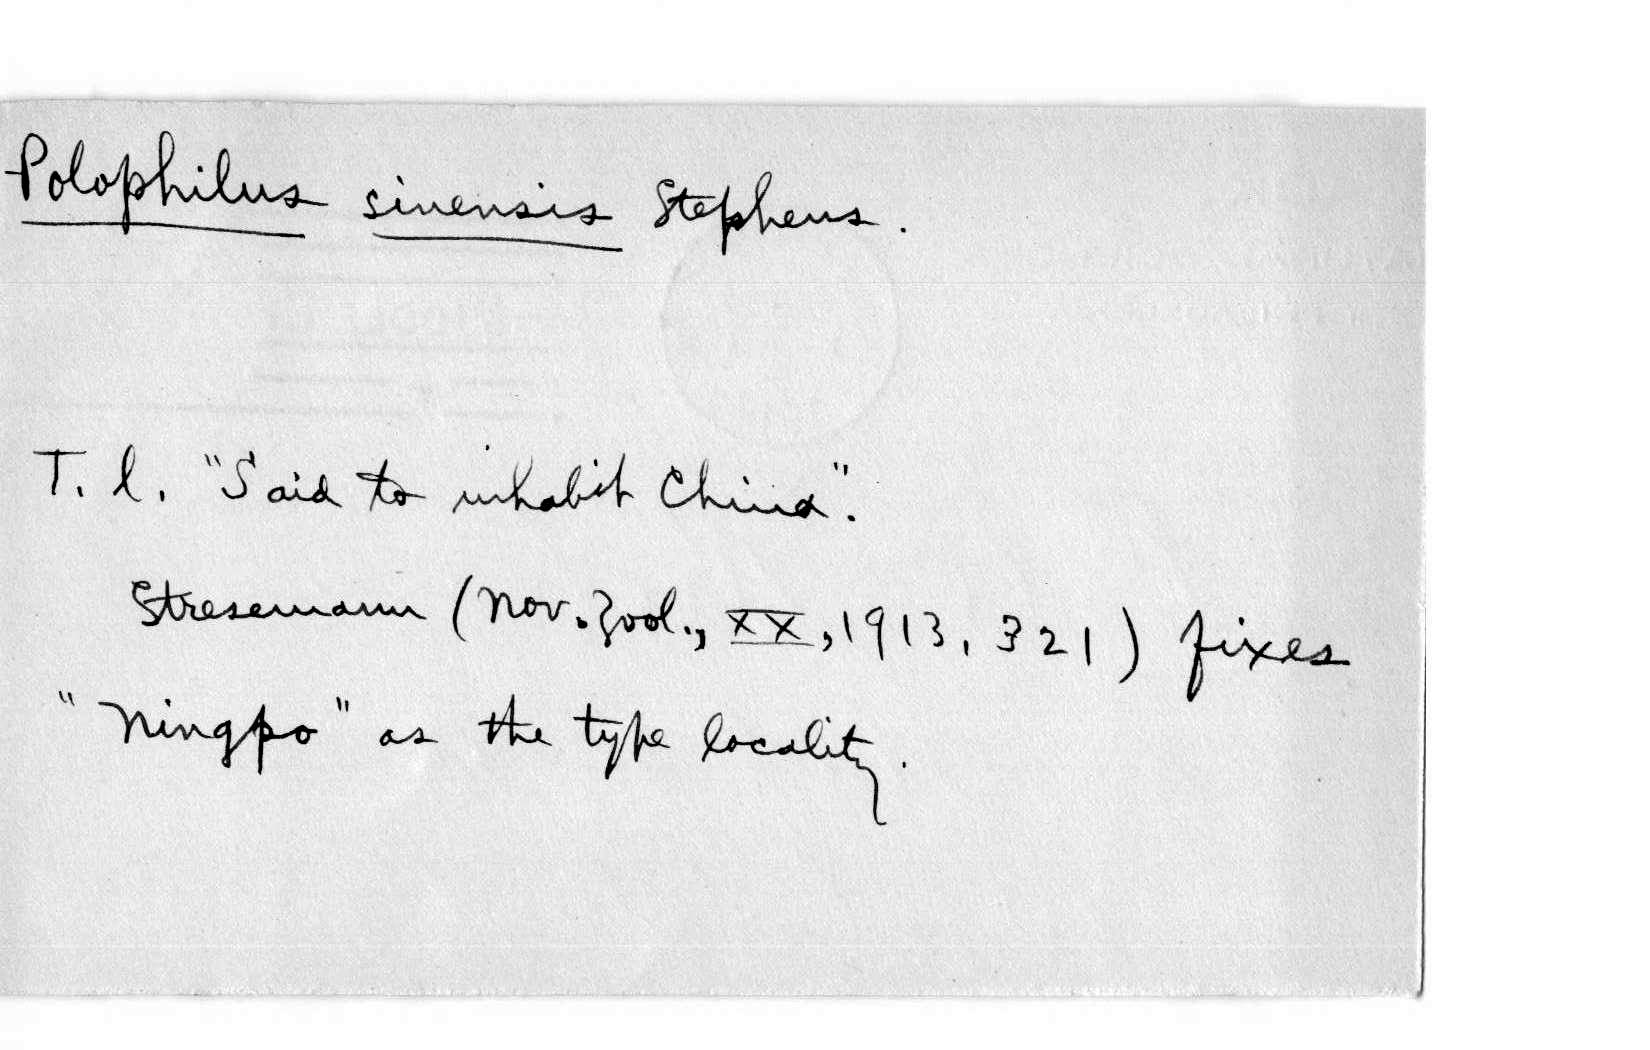 Polophilus sinensis Stephens.
T. l. "Said to inhabit China".
Stresemann (Nov. Zool., XX, 1913, 321) fixes
"Ningpo" as the type locality.